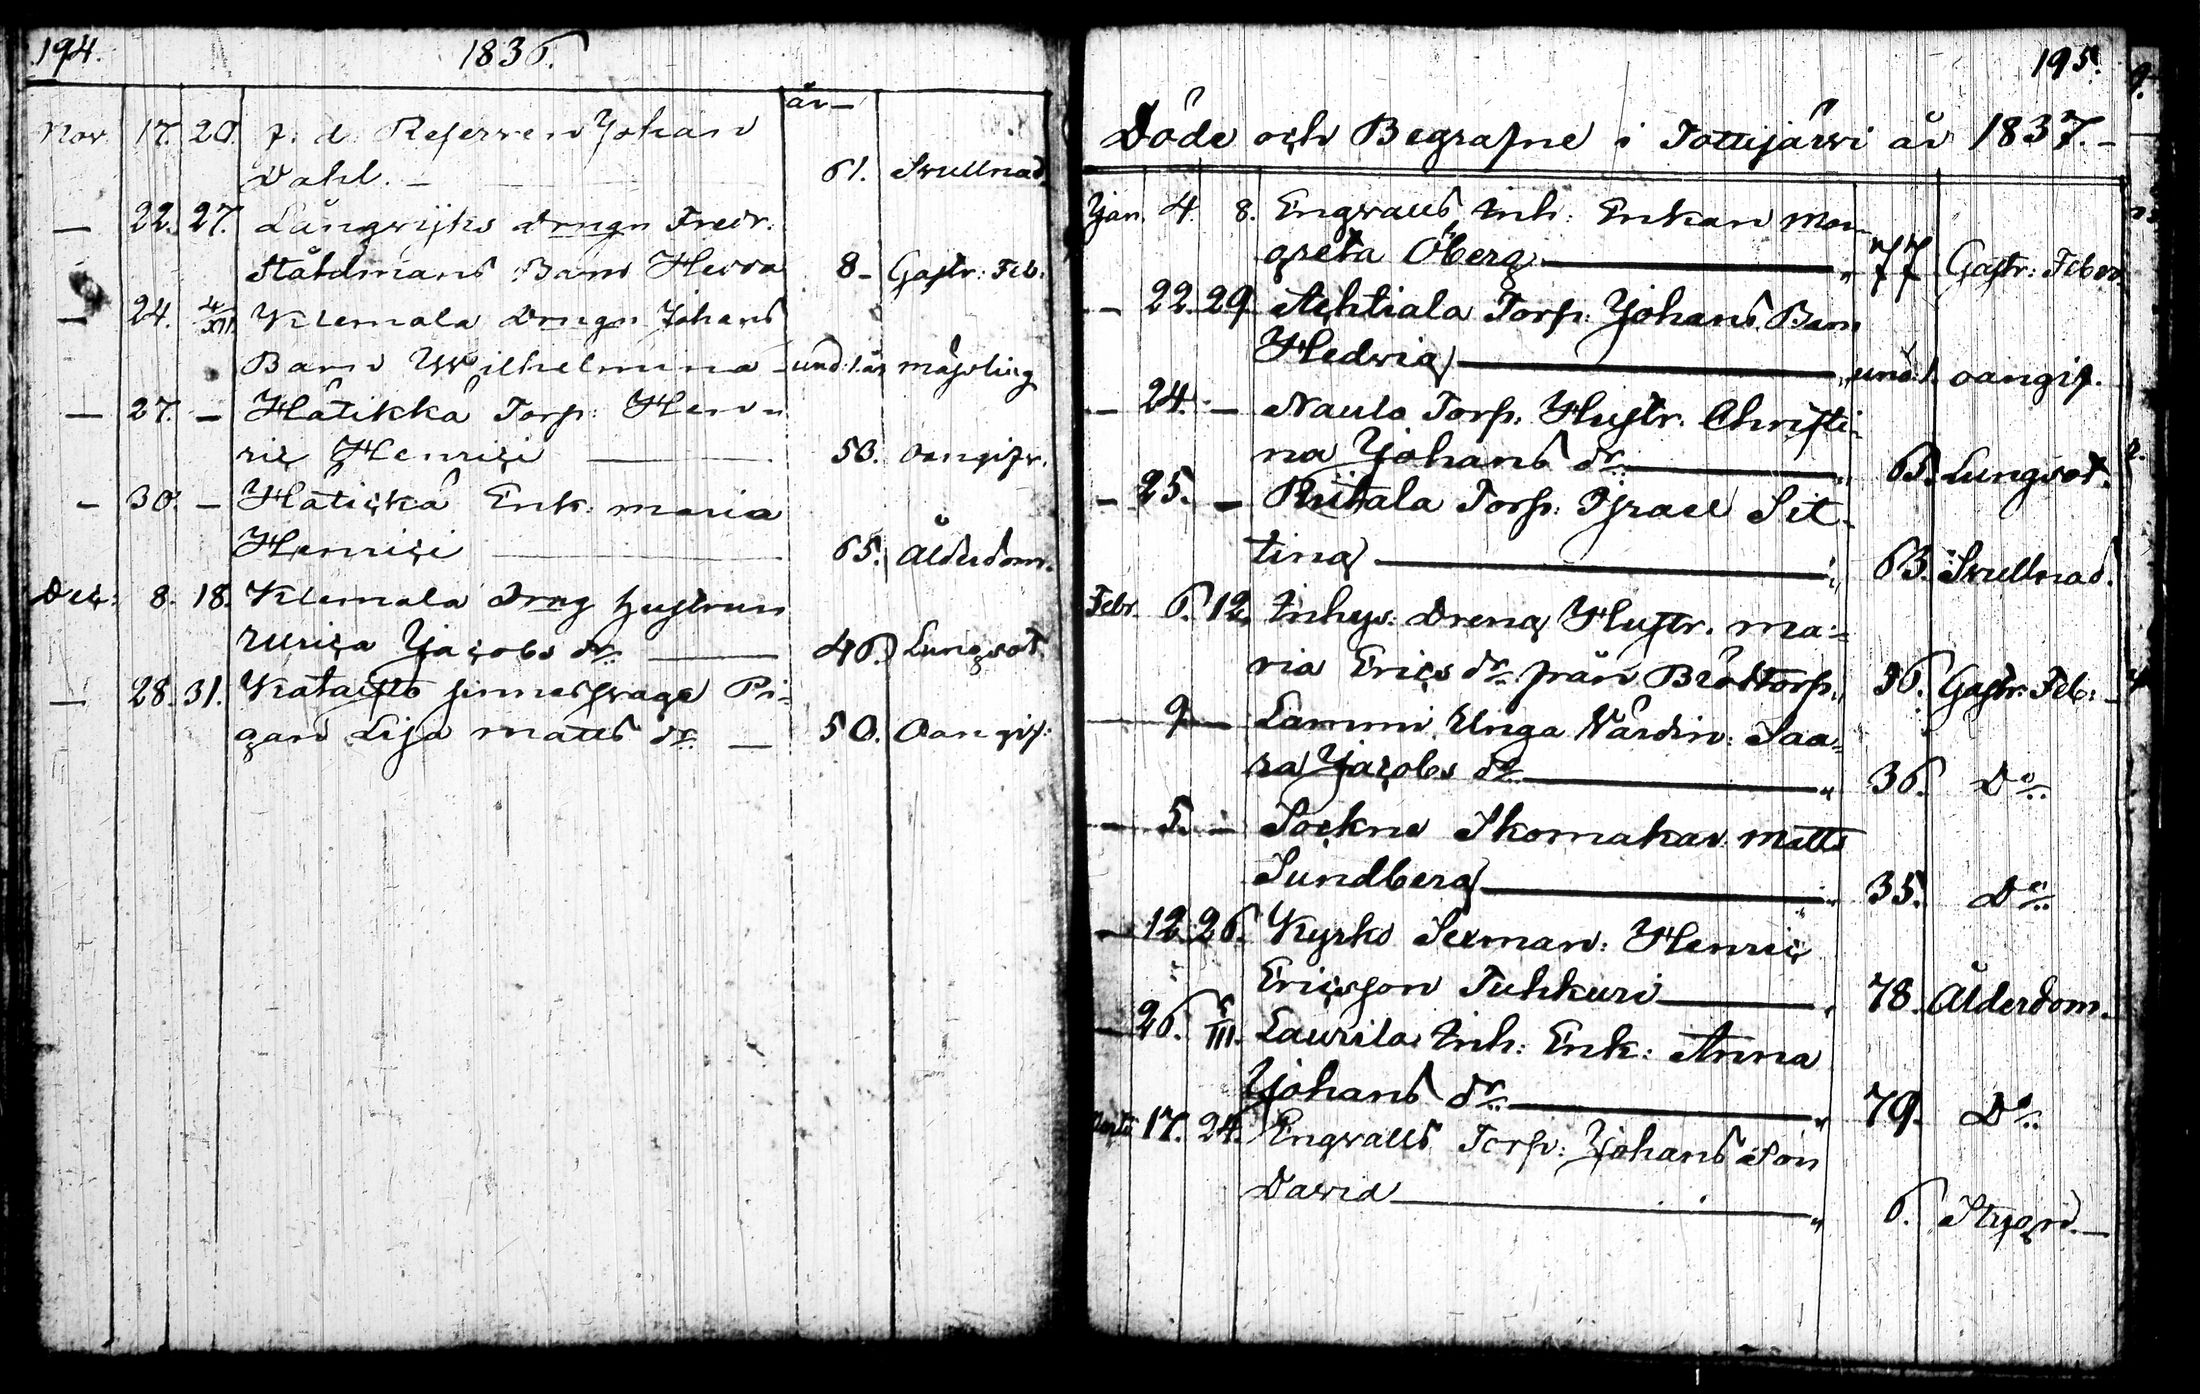 194. 1836.
år
Nov. 17. 20. f. d. Reserven Johan
Dahl. — 61. Svullnad.
— 22. 27. Långvijks drngn Fredr.
Ståhlmans Barn Hedda 8 – Gastr: Feb:
— 24. 4/XII Klemola Drngn Johans
Barn Wilhelmina und: 1 år mässling
— 27. — Hätikkä Torp: Hen-
ric Henrici — 50. oangifv.
— 30. — Hätickä Enk: Maria
Henrici — 65. Ålderdom.
Dec: 8. 18. Klemola Drng hustrun
Ulrica Jacobs dr. — 46. Lungsot.
— 28. 31. Kataisto sinnessvaga Pi-
gan Lisa Matts dr. — 50. Oangif:
195.
Döde och Begrafne i Tottijärvi år 1837. –
Jan. 4. 8. Engvalls Inh: Enkan Mar-
greta Öberg — 77 Gastr: Feber
— 22. 29. Achtiala Torp: Johans Barn
Hedvig — und: 1. oangif.
— 24. — Naulo Torp: Hustr. Christi-
na Johans dr. — 65. Lungsot.
— 25. — Riitala Torp: Israel Sit-
ting — 63. Svullnad.
Febr. 6. 12. Inhys: Dreng Hustr. Ma-
ria Erics dr. från Bråttorp. 36. Gastr: Feb: –
— 9 — Lammi Unga Värdin: Saa-
ra Jacobs dr. — 36. Do.
— 5. — Sockne Skomakar: Matts
Sundberg — 35. Do.
— 12. 26. Kyrko Sexman: Henric
Ericsson Tuhkuri — 78. Ålderdom.
— 26. 5/III. Laurila Inh: Enk: Anna
Johans dr. — 79. Do.
Martii 17. 24. Engvalls Torp: Johans Son
David — 6. Stygn. —